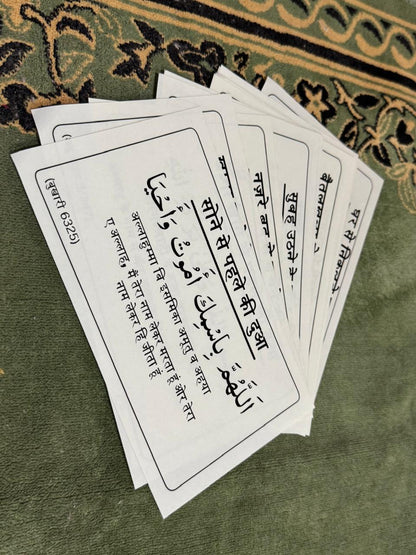 सोने से पहले की दुआ
اَللّٰهُمَّ بِاسْمِكَ أَمُوْتُ وَأَحْيَا
अल्लाहुम्मा बि इसमिका अमुतु व अहया
ए अल्लाह, मैं तेरा नाम लेकर मरता हूं और तेरा
नाम लेकर हि जीता हूं
(बुखारी 6325)
नज़रे बद
सुबह उठने
घर से निकलने